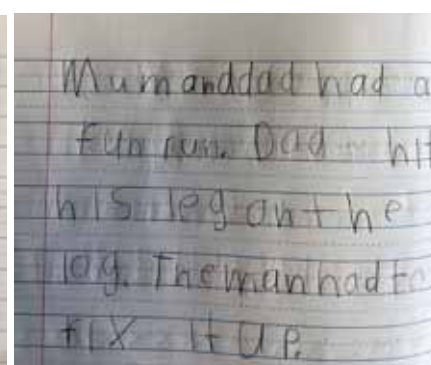 Mum and dad had a
fun run. Dad hit
his leg on the
log. The man had to
fix it up.